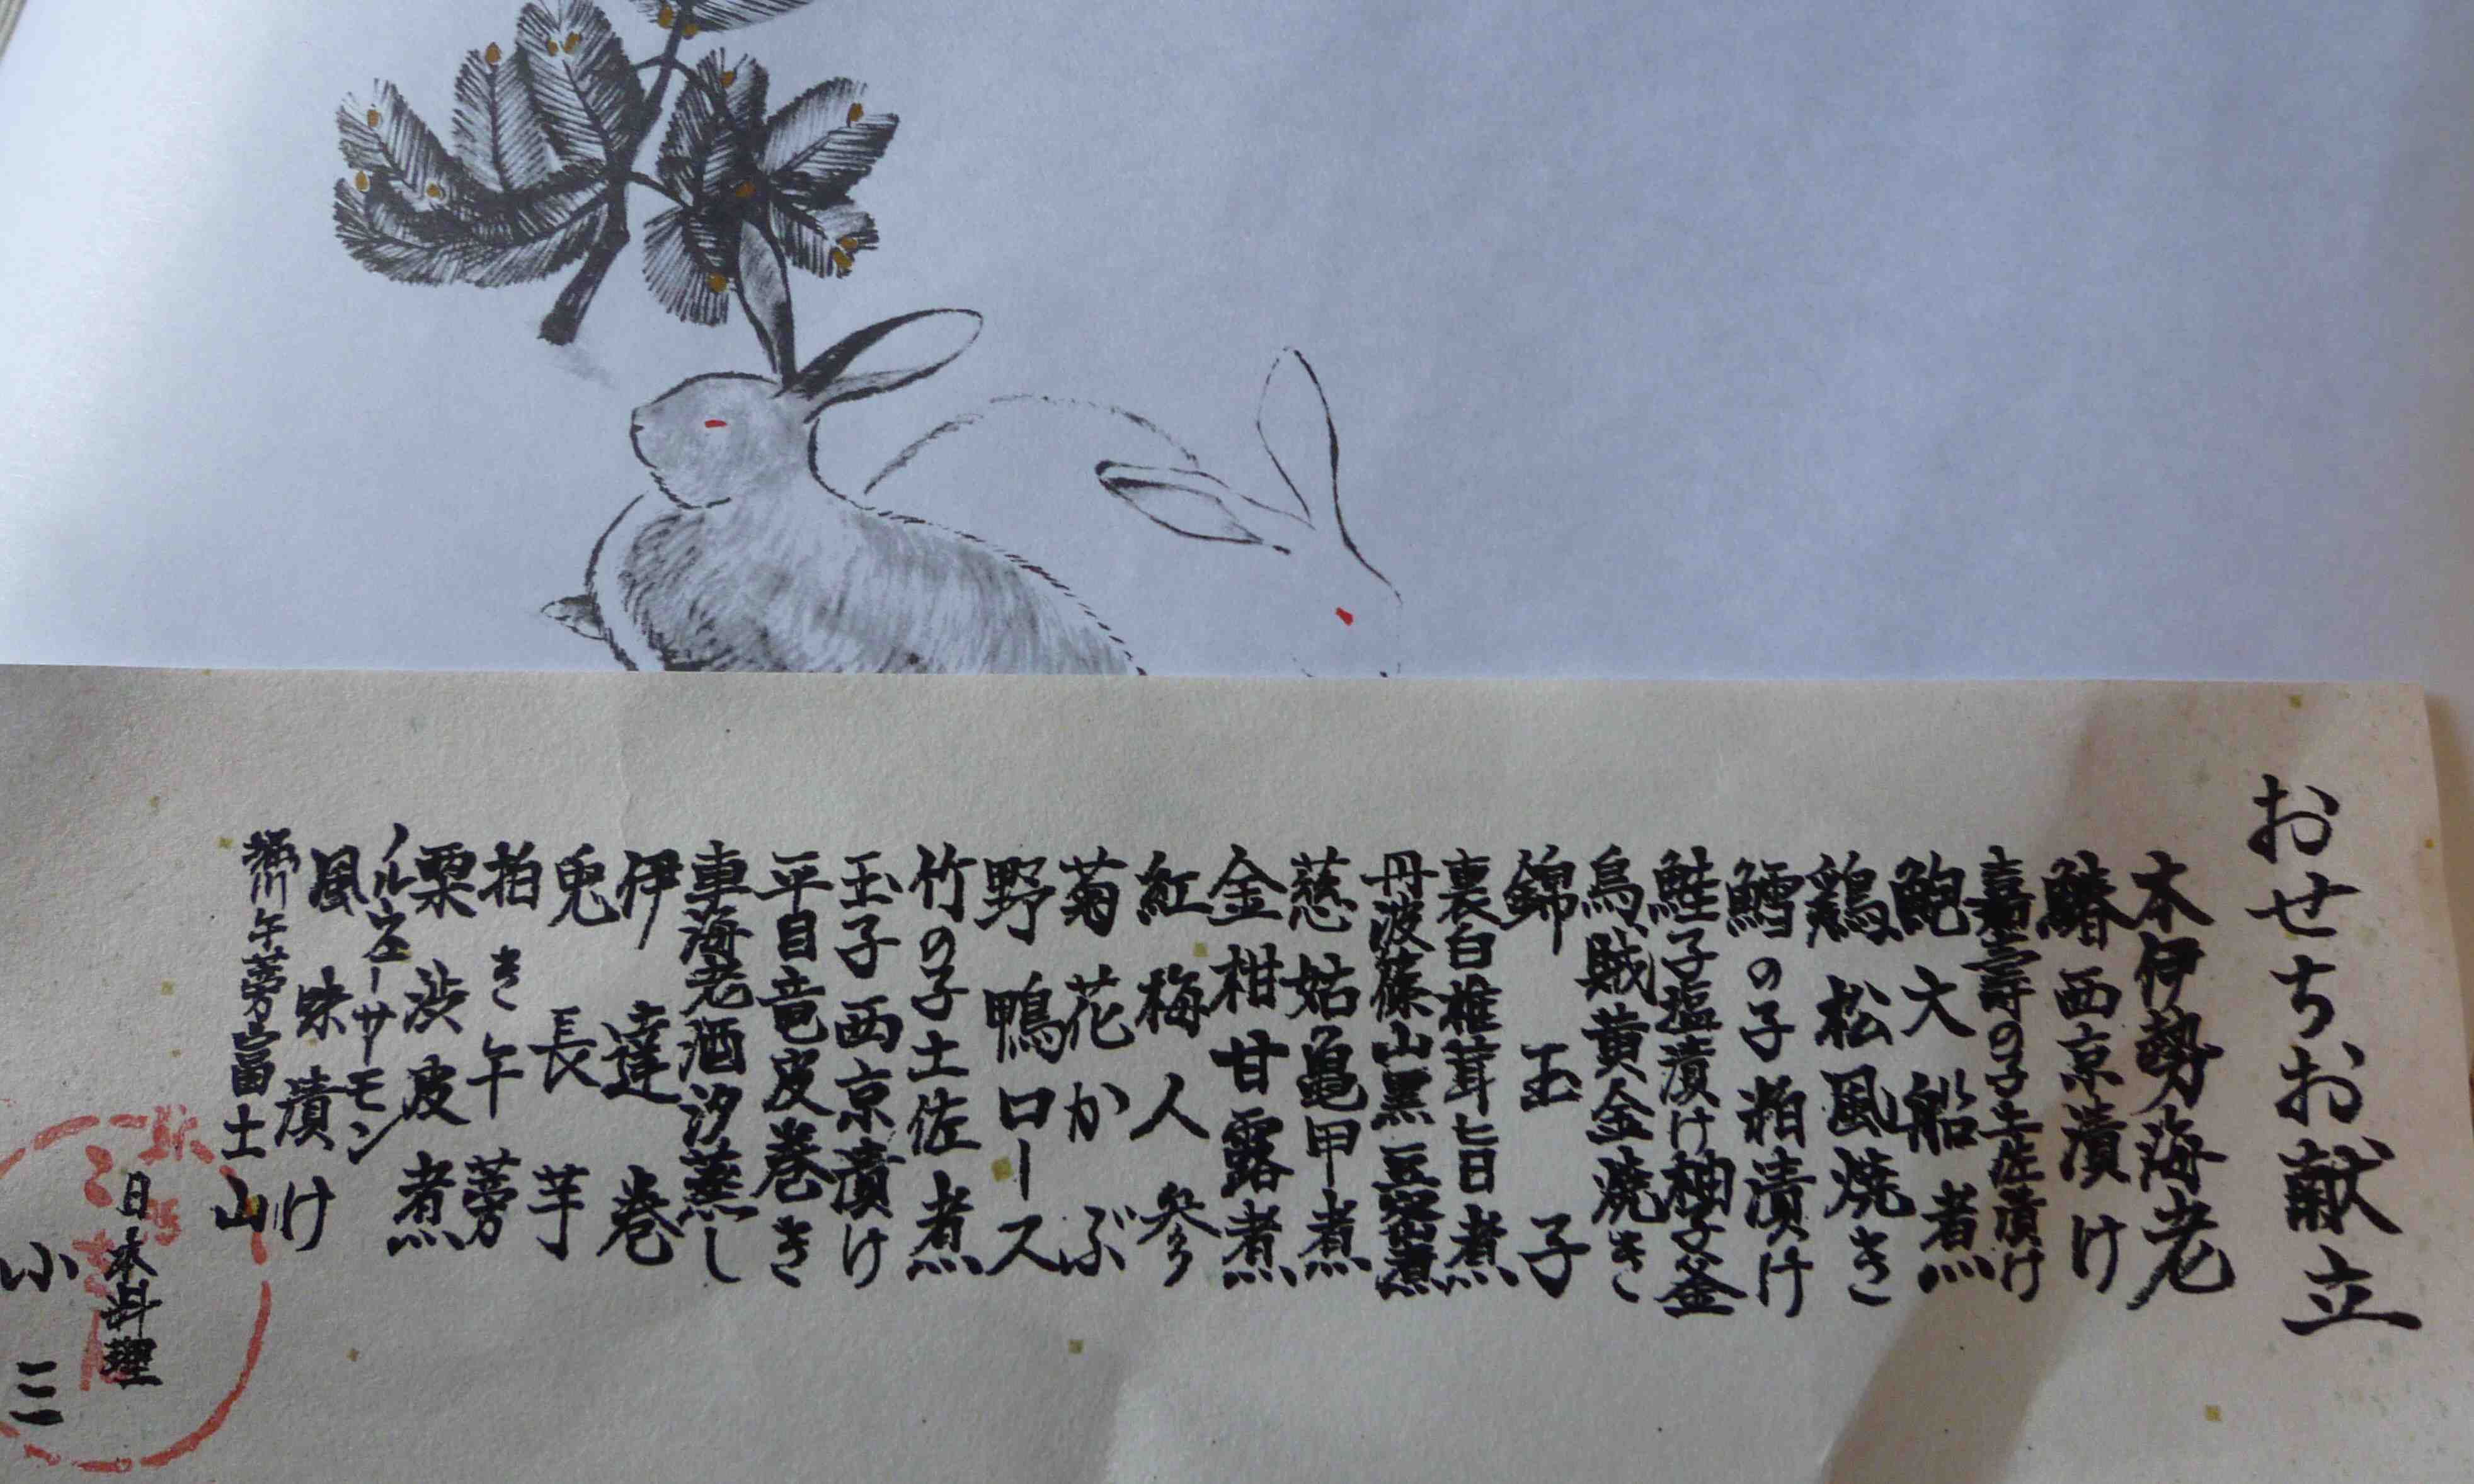 おせちお献立
本伊勢海老
鰆西京漬け
嘉壽の子土佐漬け
鮑大船煮
鶏松風焼き
鱈の子粕漬け
鮭子塩漬け柚子釜
烏賊黄金焼き
錦玉子
裏白椎茸旨煮
丹波篠山黒豆蜜煮
慈姑亀甲煮
金柑甘露煮
紅梅人参
菊花かぶ
野鴨ロース
竹の子土佐煮
玉子西京漬け
平目竜皮巻き
車海老酒汐蒸し
伊達巻
兎長芋
拍き午蒡
栗渋皮煮
ノルウェーサーモン
風味漬け
堀川午蒡富士山
日本料理
小三